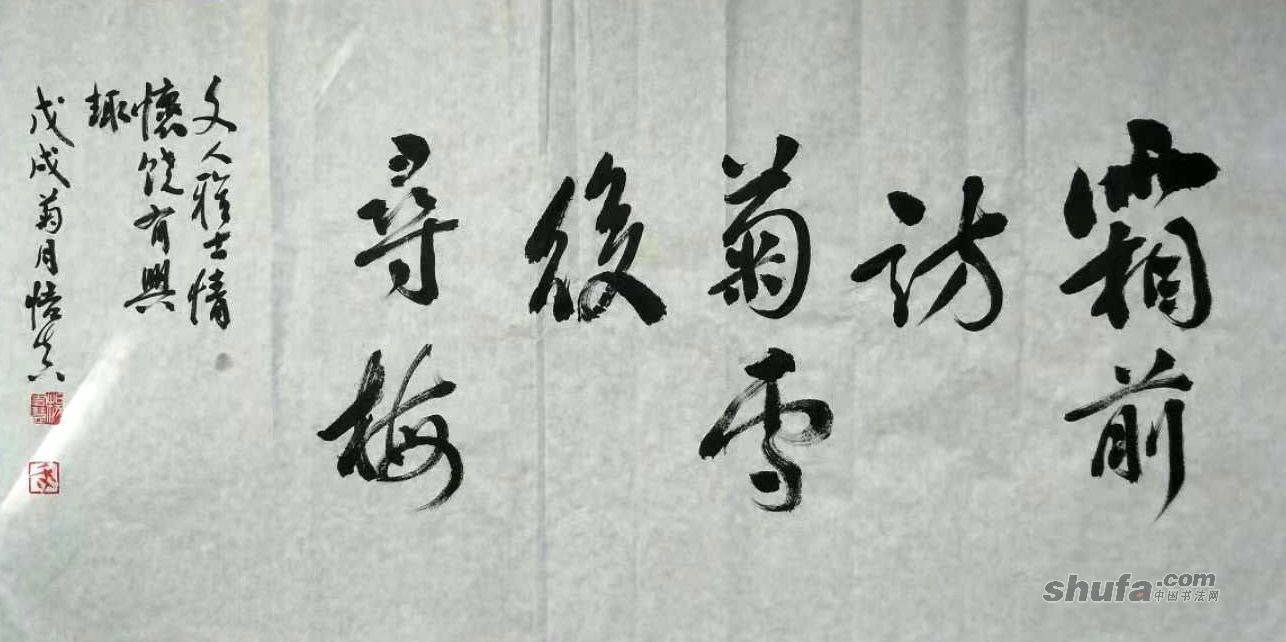 霜前
訪
菊雪
後
尋梅
文人雅士情
懷饶有興
趣
戊戌菊月悟真
shufa.com
中国书法网